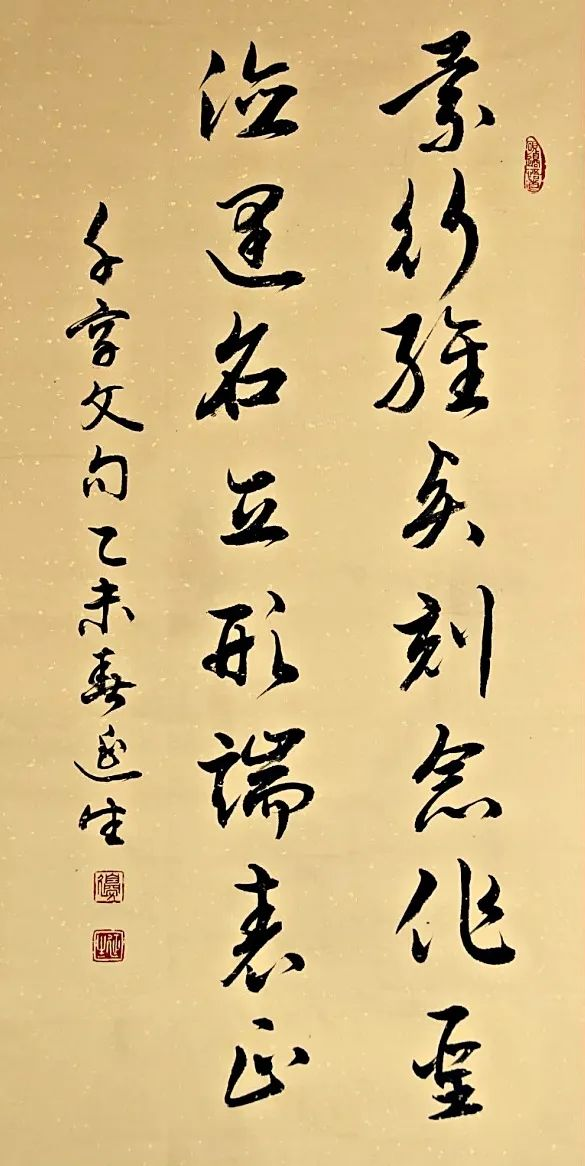 景行維賢剋念作聖
德建名立形端表正
千字文句乙未春延生